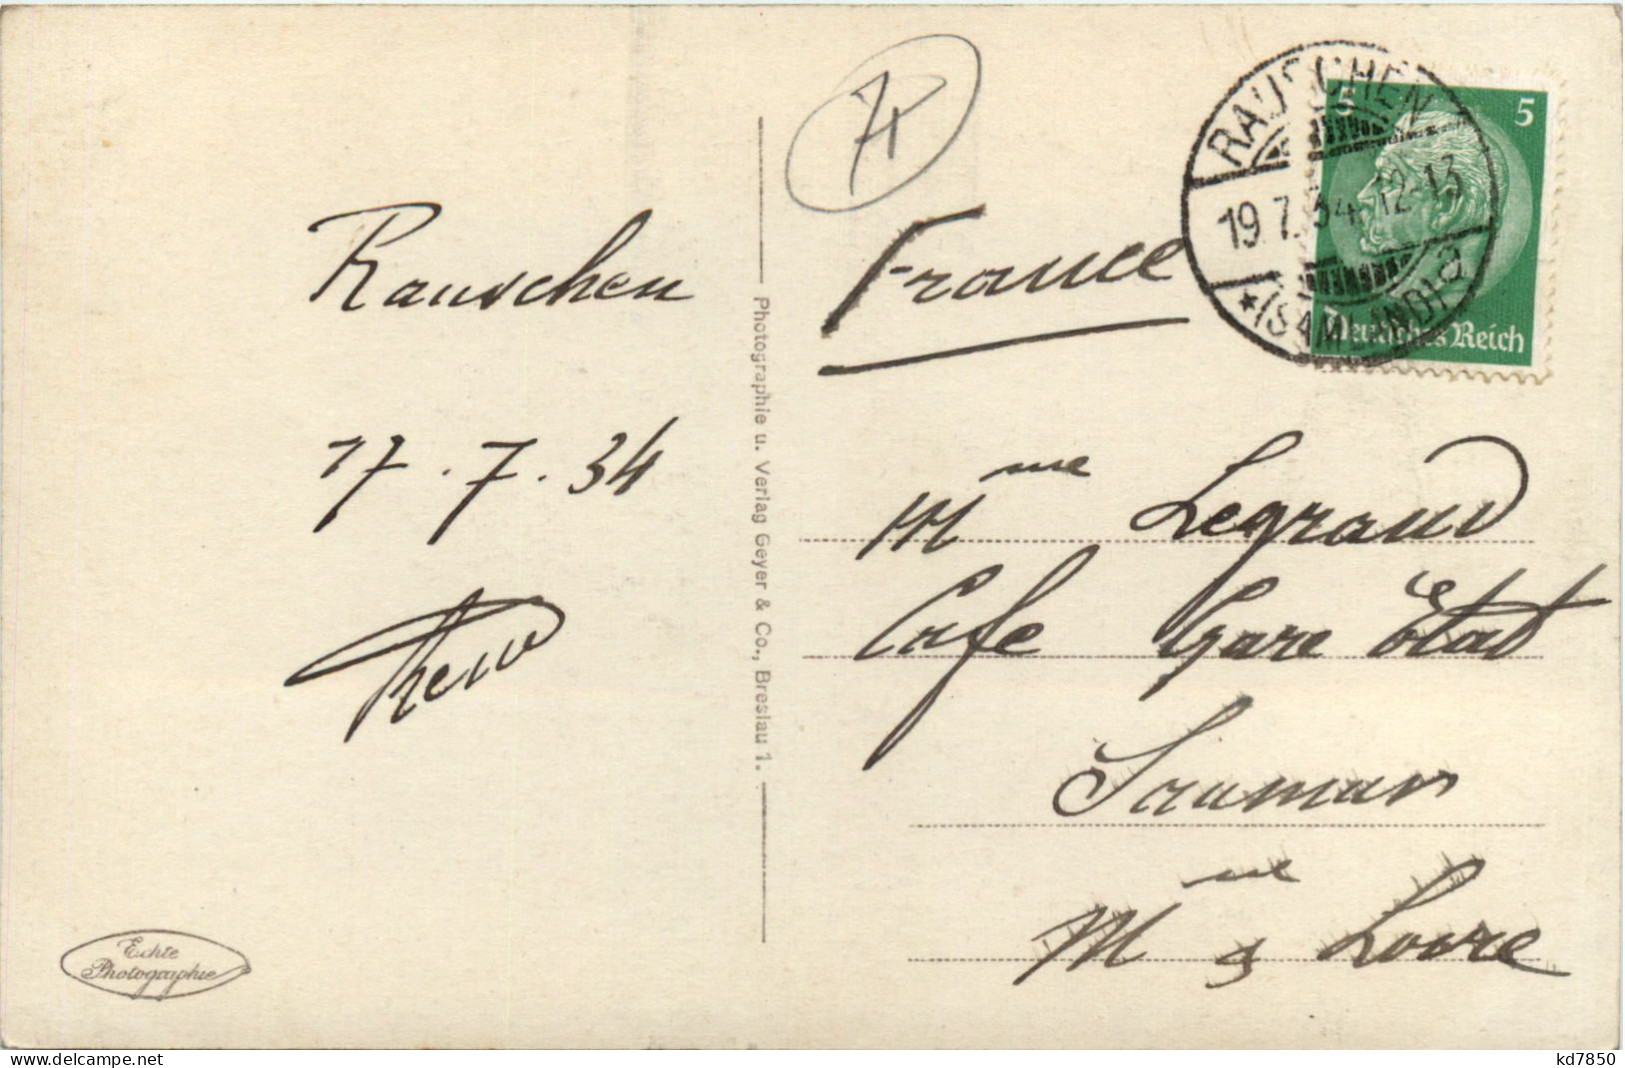 Rauschen
17.7.34
Echte
Photographie
Photographie u. Verlag Geyer & Co., Breslau 1.
France
RAUSCHEN
19.7.34.12-13
* (SAMLAND) a
5 5
Deutsches Reich
Mme Legrand
Cafe Gare Etat
Saumur
M et Loire
delcampe.net
kd7850